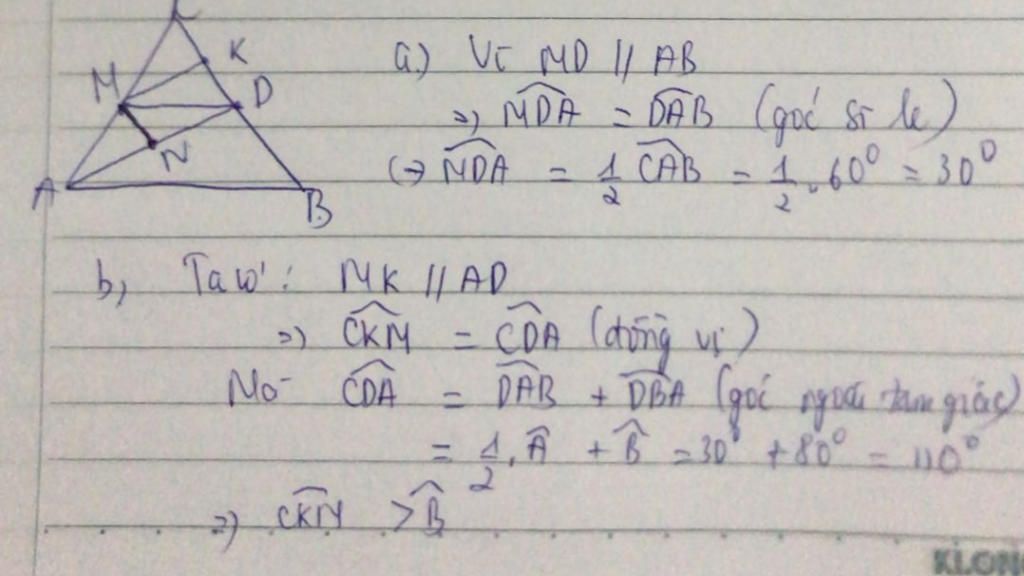 C
K
M
D
N
A
B
a) Vì MD // AB
=> \widehat{MDA} = \widehat{DAB} (góc sl le)
(=> \widehat{MDA} = 1/2 \widehat{CAB} = 1/2 . 60° = 30°
b, Ta có : MK // AD
=> \widehat{CKM} = \widehat{CDA} (đồng vị)
Mà \widehat{CDA} = \widehat{DAB} + \widehat{DBA} (góc ngoài tam giác)
= 1/2 . \widehat{A} + \widehat{B} = 30° + 80° = 110°
=> \widehat{CKM} > \widehat{B}
KLONG